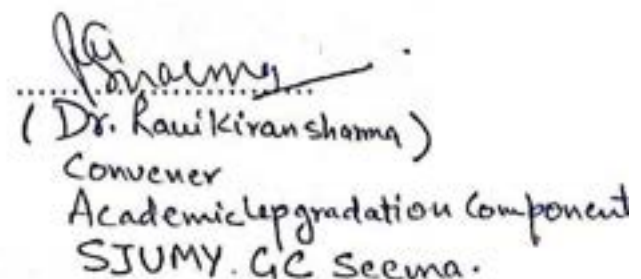 Sharma
( Dr. Ravikiran sharma )
Convener
Academic Upgradation Component
SJUMY. GC Seema.